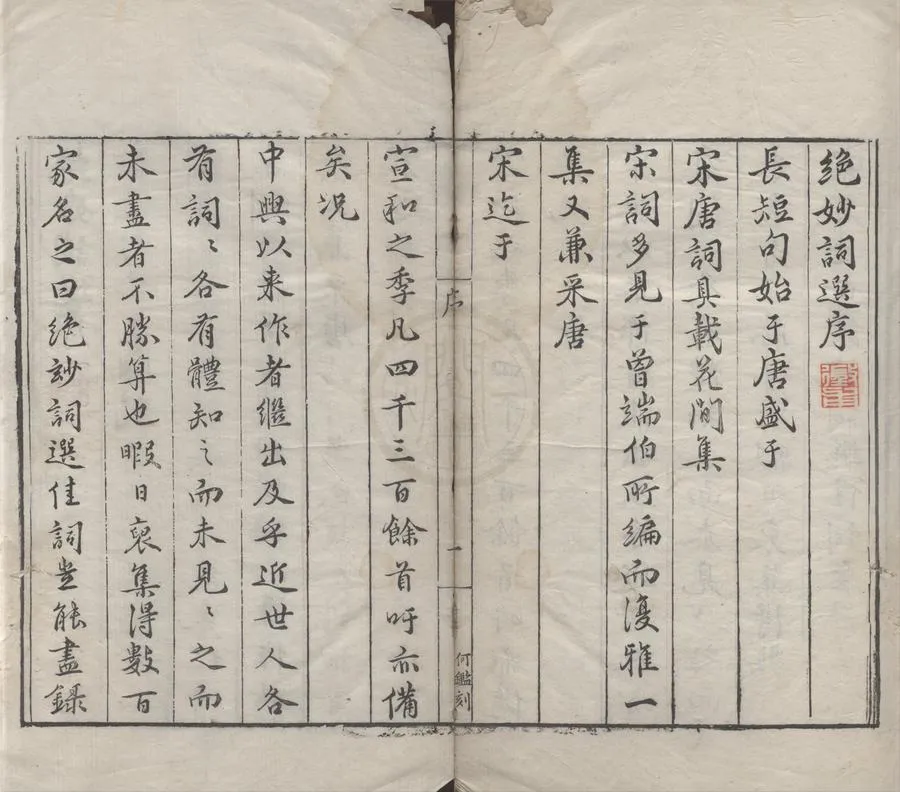 绝妙詞選序
長短句始于唐盛于
宋唐詞具載花間集
宋詞多見于曾端伯所編而復雅一
集又兼采唐
宋迄于
序
一
何鑑刻
宣和之季凡四千三百餘首吁亦備
矣况
中興以来作者繼出及乎近世人各
有詞〻各有體知之而未見〻之而
未盡者不勝算也暇日裒集得數百
家名之曰绝妙詞選佳詞豈能盡録